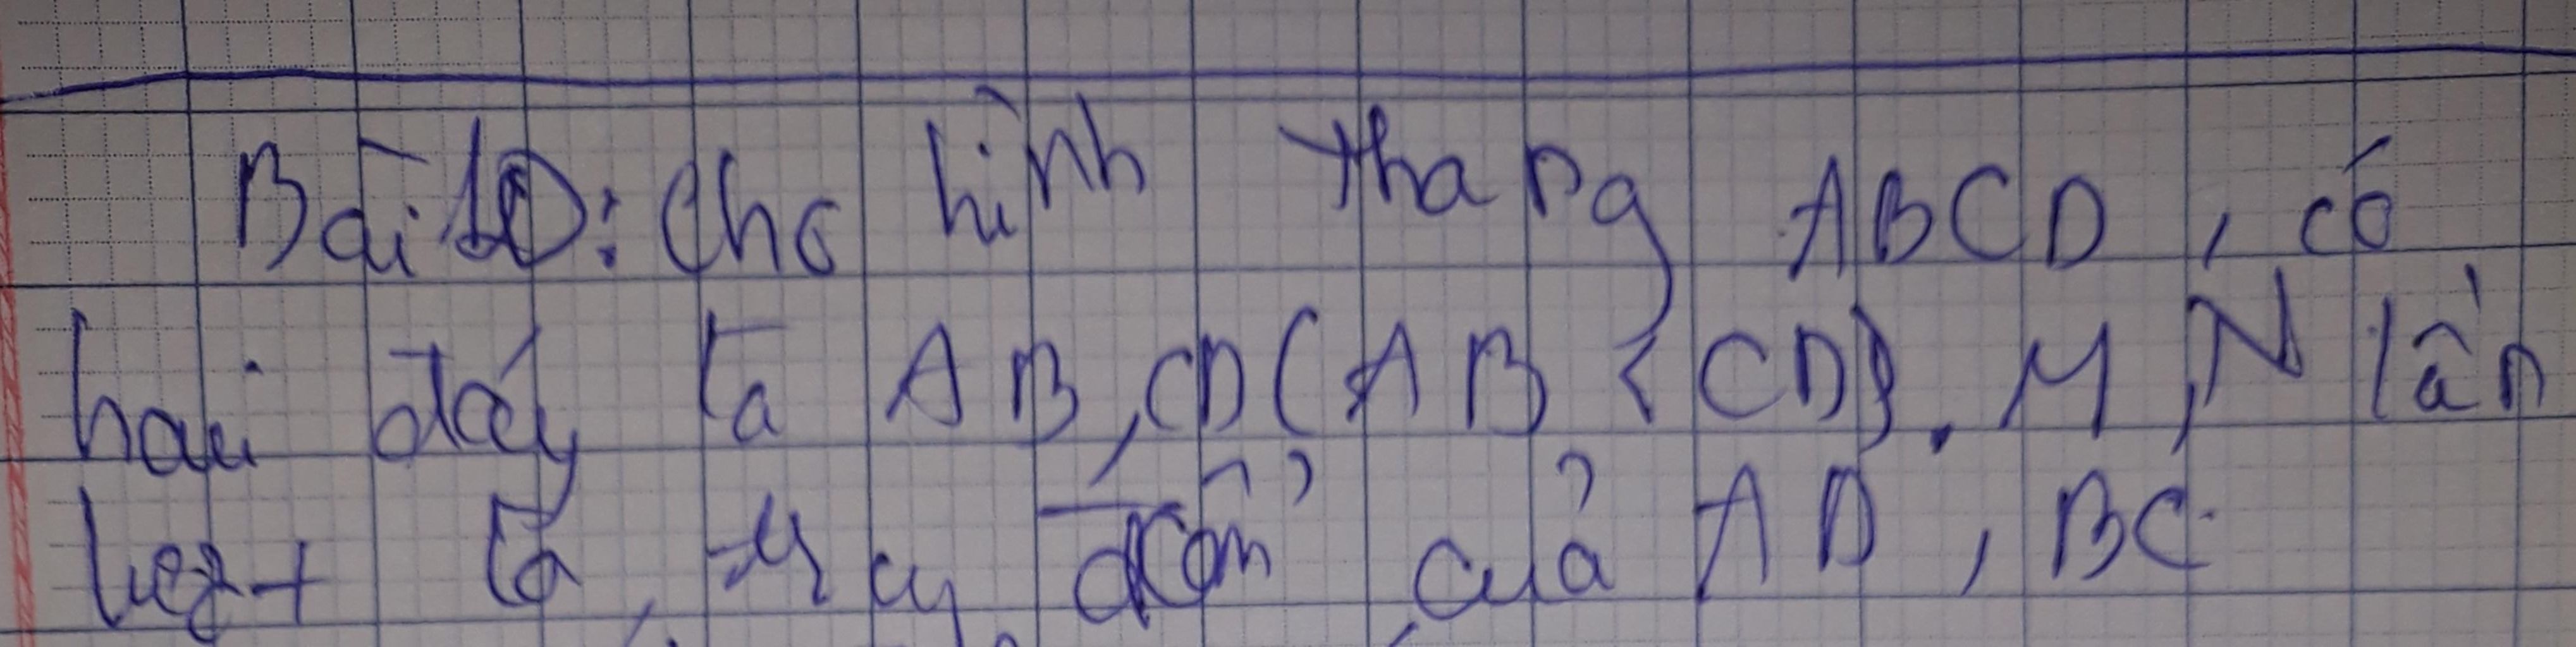 Bài 10: Cho hình thang ABCD, có
hai đáy là AB, CD (AB < CD). M, N lần
lượt là trung điểm của AD, BC